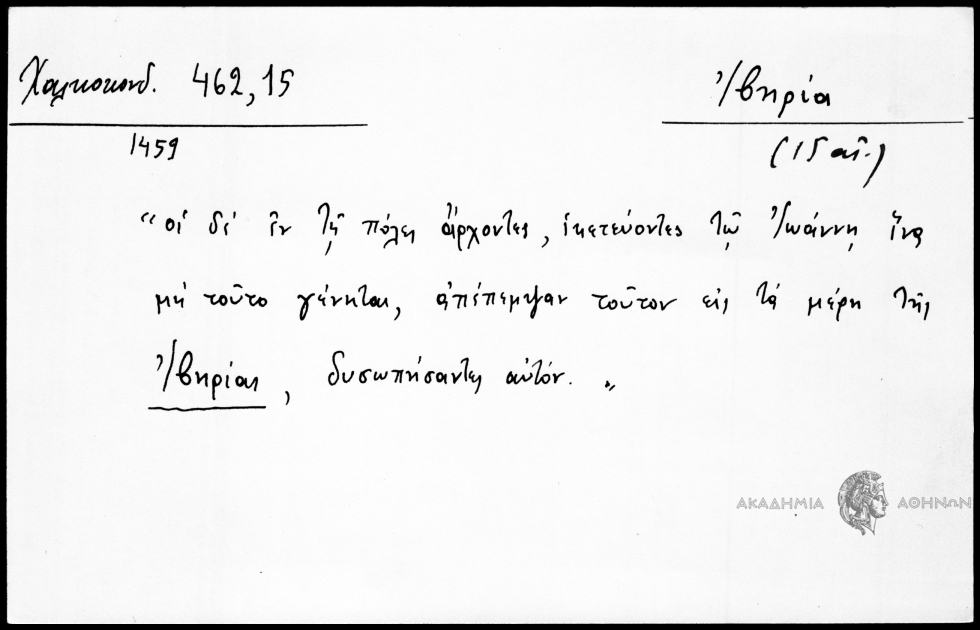 Χαλκοκονδ. 462,15
Ἰβηρία
1459
(15 αἰ.)
“οἱ δὲ ἐν τῇ πόλει ἄρχοντες, ἱκετεύοντες τῷ Ἰωάννῃ ἵνα
μὴ τοῦτο γένηται, ἀπέπεμψαν τοῦτον εἰς τὰ μέρη τῆς
Ἰβηρίας, δυσωπήσαντες αὐτόν.„
ΑΚΑΔΗΜΙΑ ΑΘΗΝΩΝ